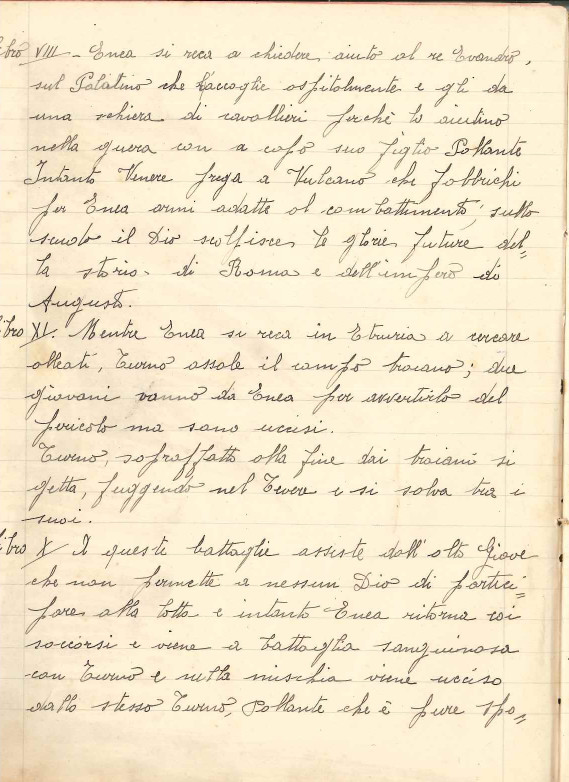 libro VIII - Enea si reca a chiedere aiuto al re Evandro,
sul Palatino che l'accoglie ospitalmente e gli da
una schiera di cavallieri perchè lo aiutino
nella guera con a capo suo figlio Pallante
Intanto Venere prega a Vulcano che fabbrichi
per Enea armi adatte al combattimento; sullo
scudo il Dio scolfisce le glorie future del=
la storia di Roma e dell'impero di
Augusto.
libro XI. Mentre Enea si reca in Etruria a cercare
alleati, Turno assale il campo troiano; due
giovani vanno da Enea per avvertirlo del
pericolo ma sano uccisi.
Turno, sopraffatto alla fine dai troiani si
getta, fuggendo nel Tevere e si salva tra i
suoi.
libro X A queste battaglie assiste dall'alto Giove
che non permette a nessun Dio di partici=
pare alla lotta e intanto Enea ritorna coi
soccorsi e viene a battaglia sanguinosa
con Turno e nella mischia viene ucciso
dallo stesso Turno, Pallante che è pure spo=